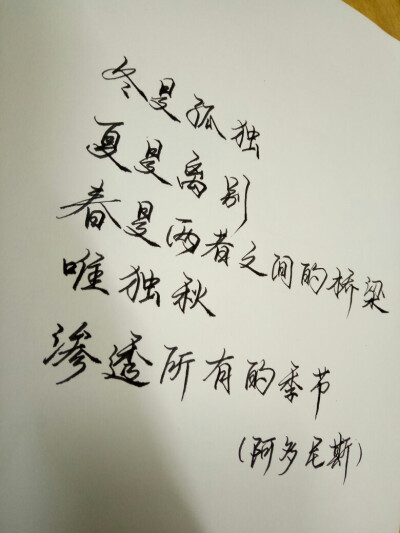 冬是孤独
夏是离别
春是两者之间的桥梁
唯独秋
渗透所有的季节
(阿多尼斯)